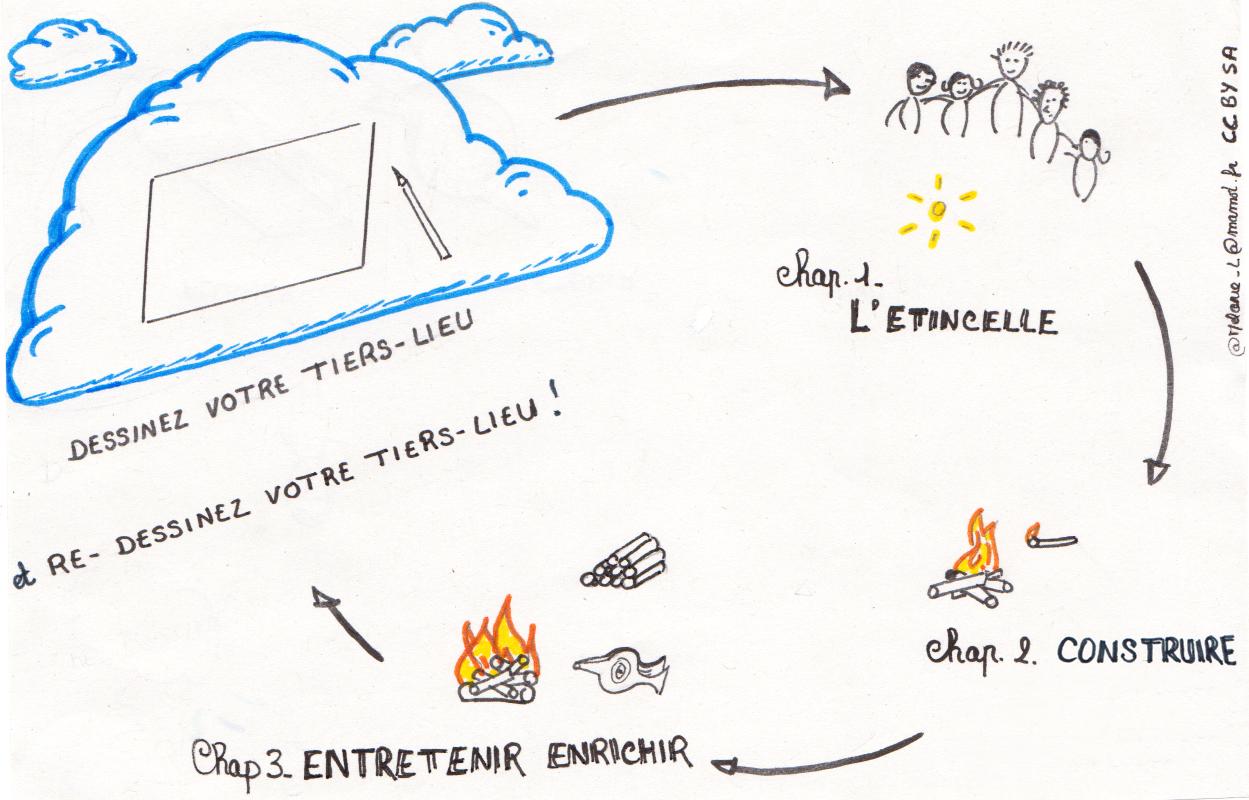 DESSINEZ VOTRE TIERS-LIEU
et RE-DESSINEZ VOTRE TIERS-LIEU !
Chap. 1.
L'ETINCELLE
Chap. 2. CONSTRUIRE
Chap 3. ENTRETENIR ENRICHIR
CC BY SA